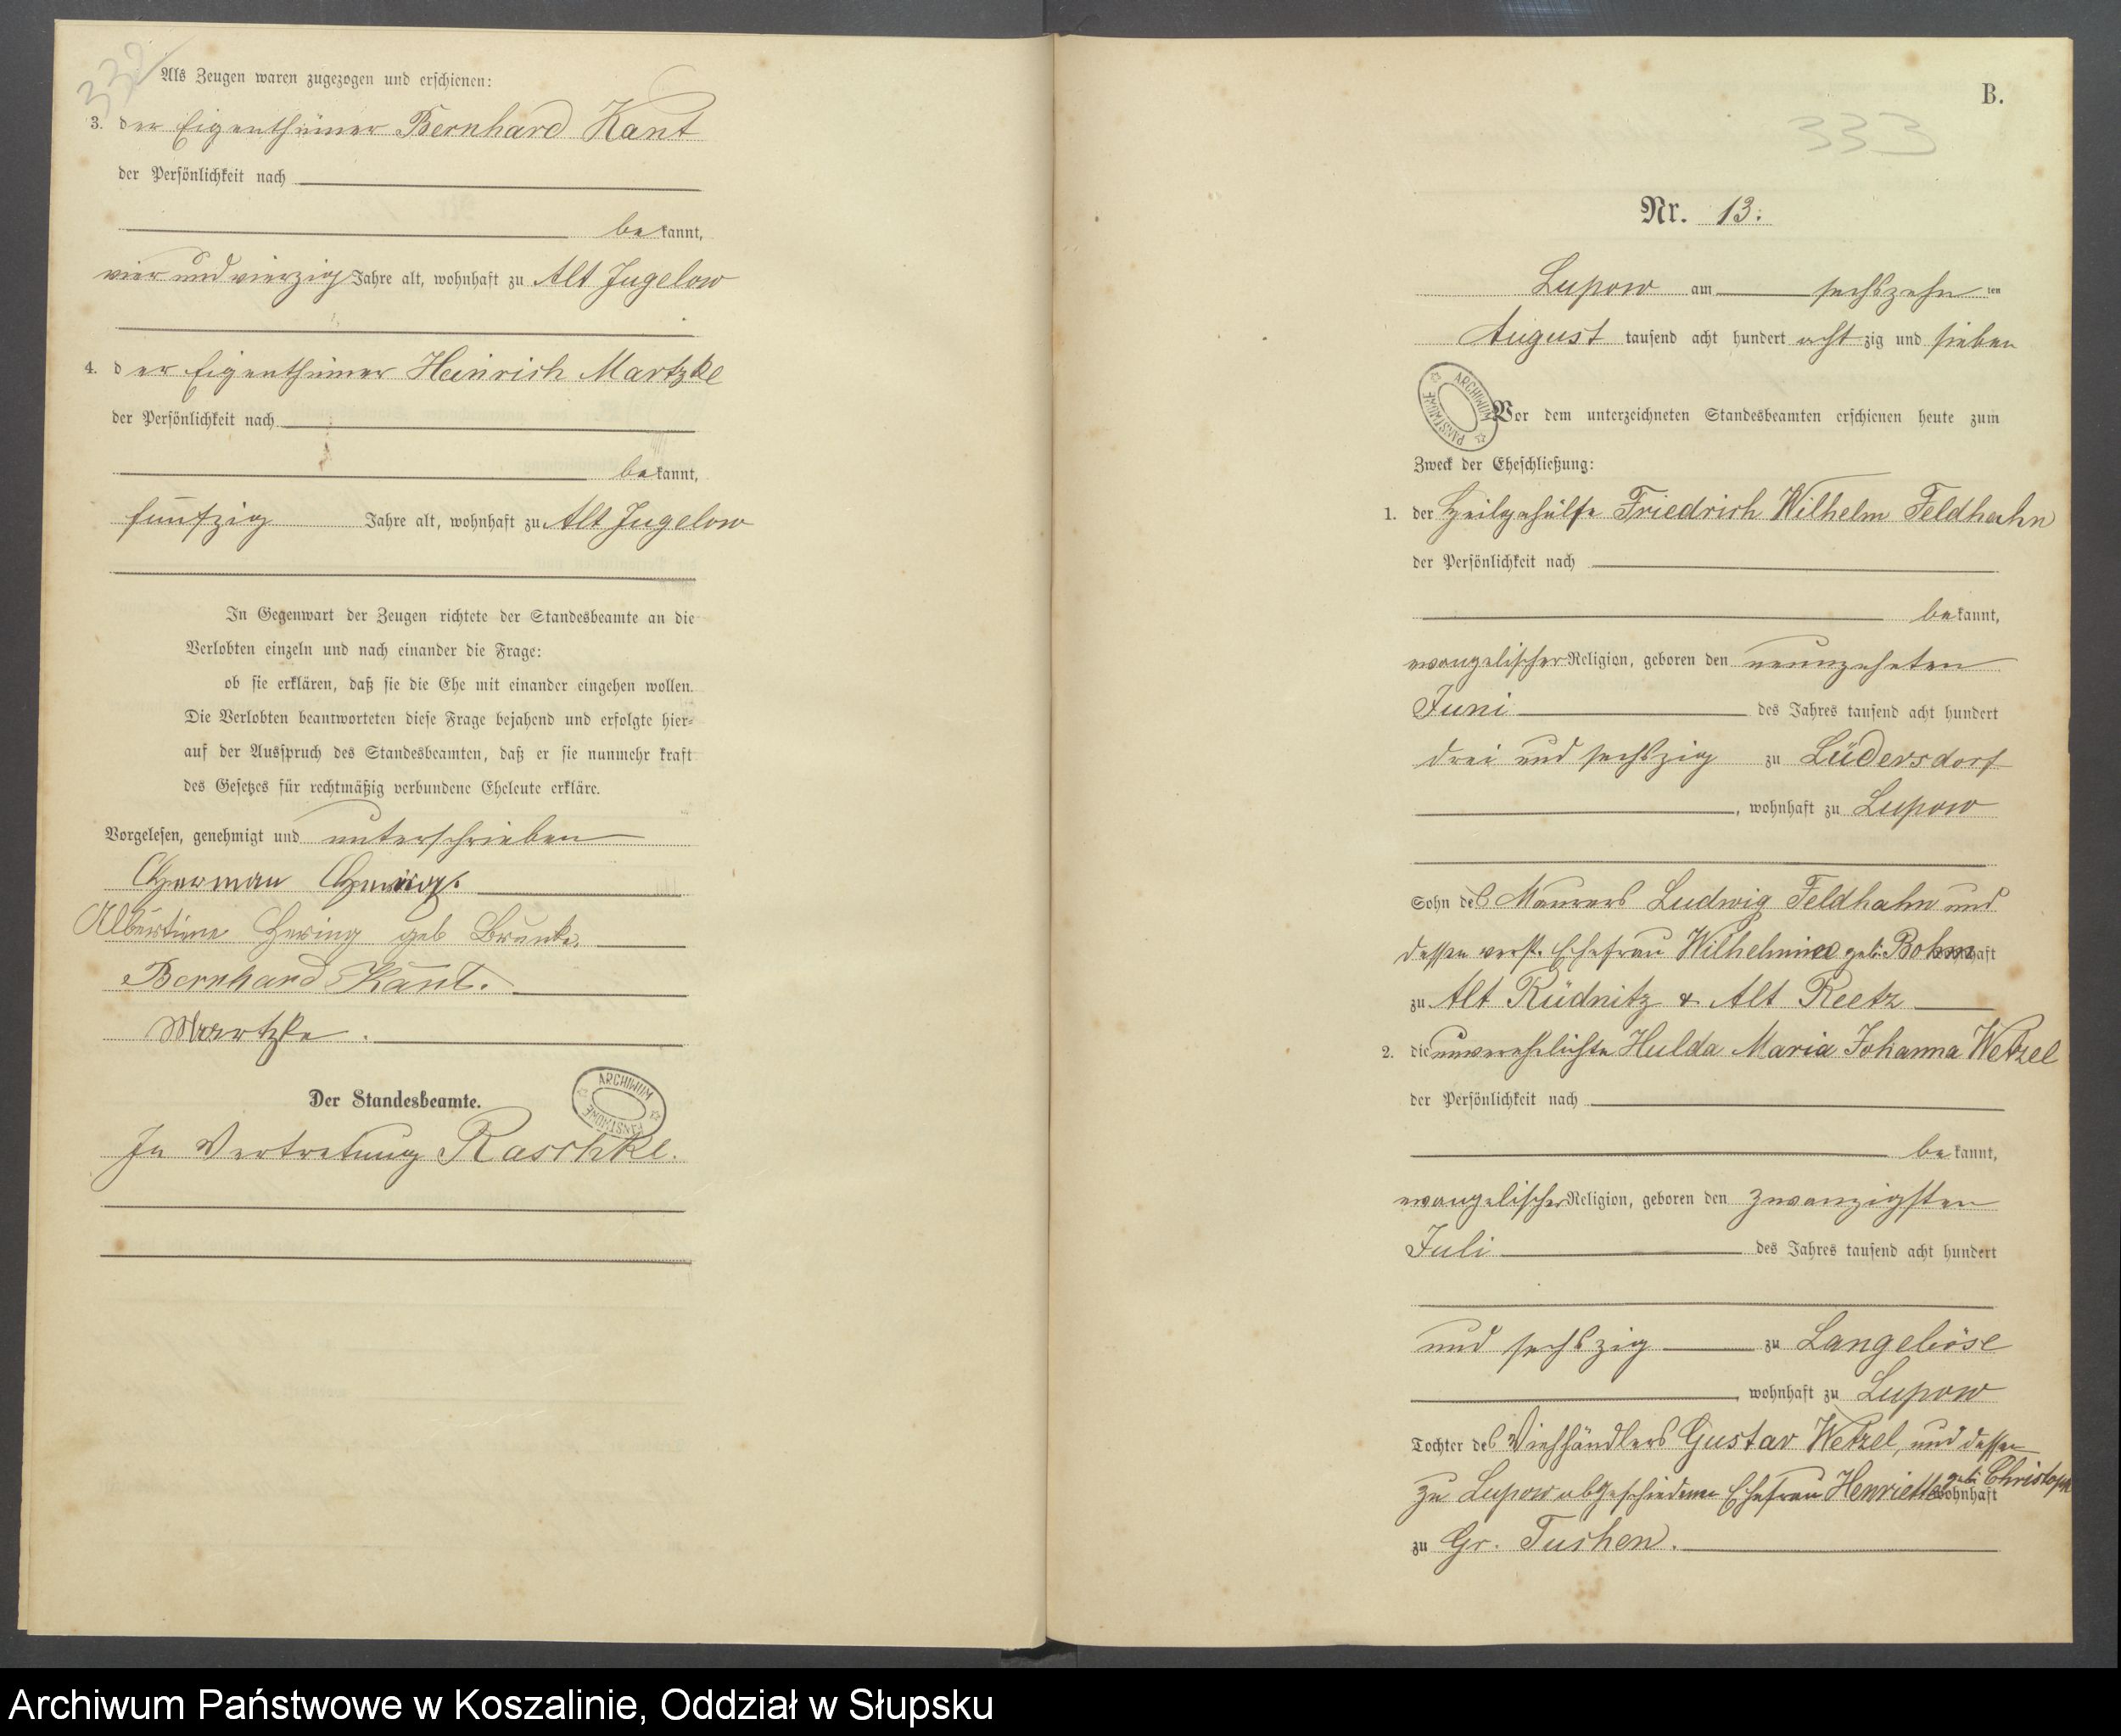 332
Als Zeugen waren zugezogen und erschienen:
3. der Eigenthümer Bernhard Kant
der Persönlichkeit nach
bekannt,
vier und vierzig Jahre alt, wohnhaft zu Alt Jugelow
4. der Eigenthümer Heinrich Martzke
der Persönlichkeit nach
bekannt,
fünfzig Jahre alt, wohnhaft zu Alt Jugelow
In Gegenwart der Zeugen richtete der Standesbeamte an die
Verlobten einzeln und nach einander die Frage:
ob sie erklären, daß sie die Ehe mit einander eingehen wollen.
Die Verlobten beantworteten diese Frage bejahend und erfolgte hier-
auf der Ausspruch des Standesbeamten, daß er sie nunmehr kraft
des Gesetzes für rechtmäßig verbundene Eheleute erkläre.
Vorgelesen, genehmigt und unterschrieben
Herman Hering.
Albertine Hering geb Brunke.
Bernhard Kant.
Martzke.
Der Standesbeamte.
ARCHIWUM PAŃSTWOWE
In Vertretung Raschke.
B.
333
Nr. 13.
Lupow am sechszehnten
August tausend acht hundert achtzig und sieben
ARCHIWUM PAŃSTWOWE
Vor dem unterzeichneten Standesbeamten erschienen heute zum
Zweck der Eheschließung:
1. der Heilgehülfe Friedrich Wilhelm Feldhahn
der Persönlichkeit nach
bekannt,
evangelischer Religion, geboren den neunzehnten
Juni des Jahres tausend acht hundert
drei und sechszig zu Lüdersdorf
, wohnhaft zu Lupow
Sohn des Maurers Ludwig Feldhahn und
dessen verst. Ehefrau Wilhelmine geb. Bohm wohnhaft
zu Alt Rüdnitz & Alt Reetz
2. die unverehelichte Hulda Maria Johanna Wetzel
der Persönlichkeit nach
bekannt,
evangelischer Religion, geboren den zwanzigsten
Juli des Jahres tausend acht hundert
und sechszig zu Langeböse
, wohnhaft zu Lupow
Tochter des Viehhändlers Gustav Wetzel, und dessen
zu Lupow abgeschiedene Ehefrau Henriette geb. Christoph wohnhaft
zu Gr. Tuchen.
Archiwum Państwowe w Koszalinie, Oddział w Słupsku